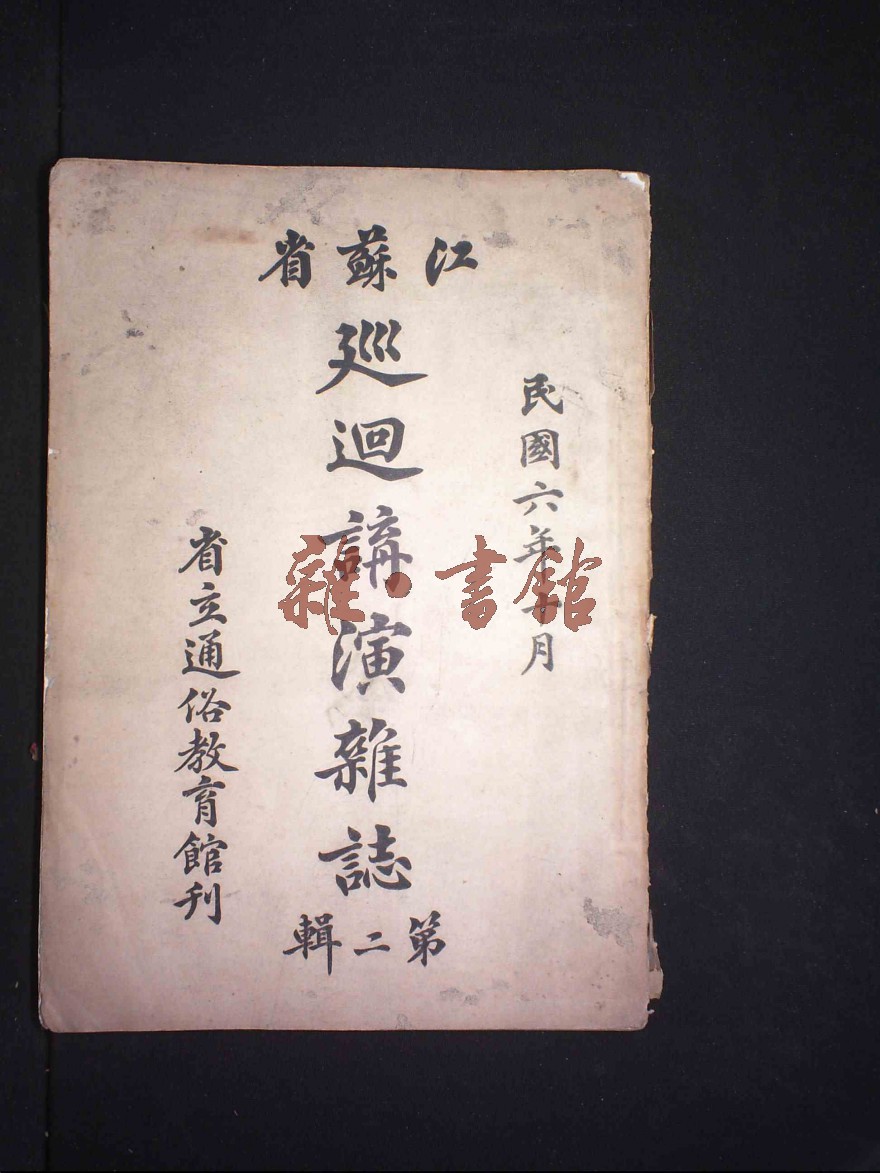 民國六年十月
江蘇省
廵迴講演雜誌
第二輯
省立通俗教育館刊
雜·書館